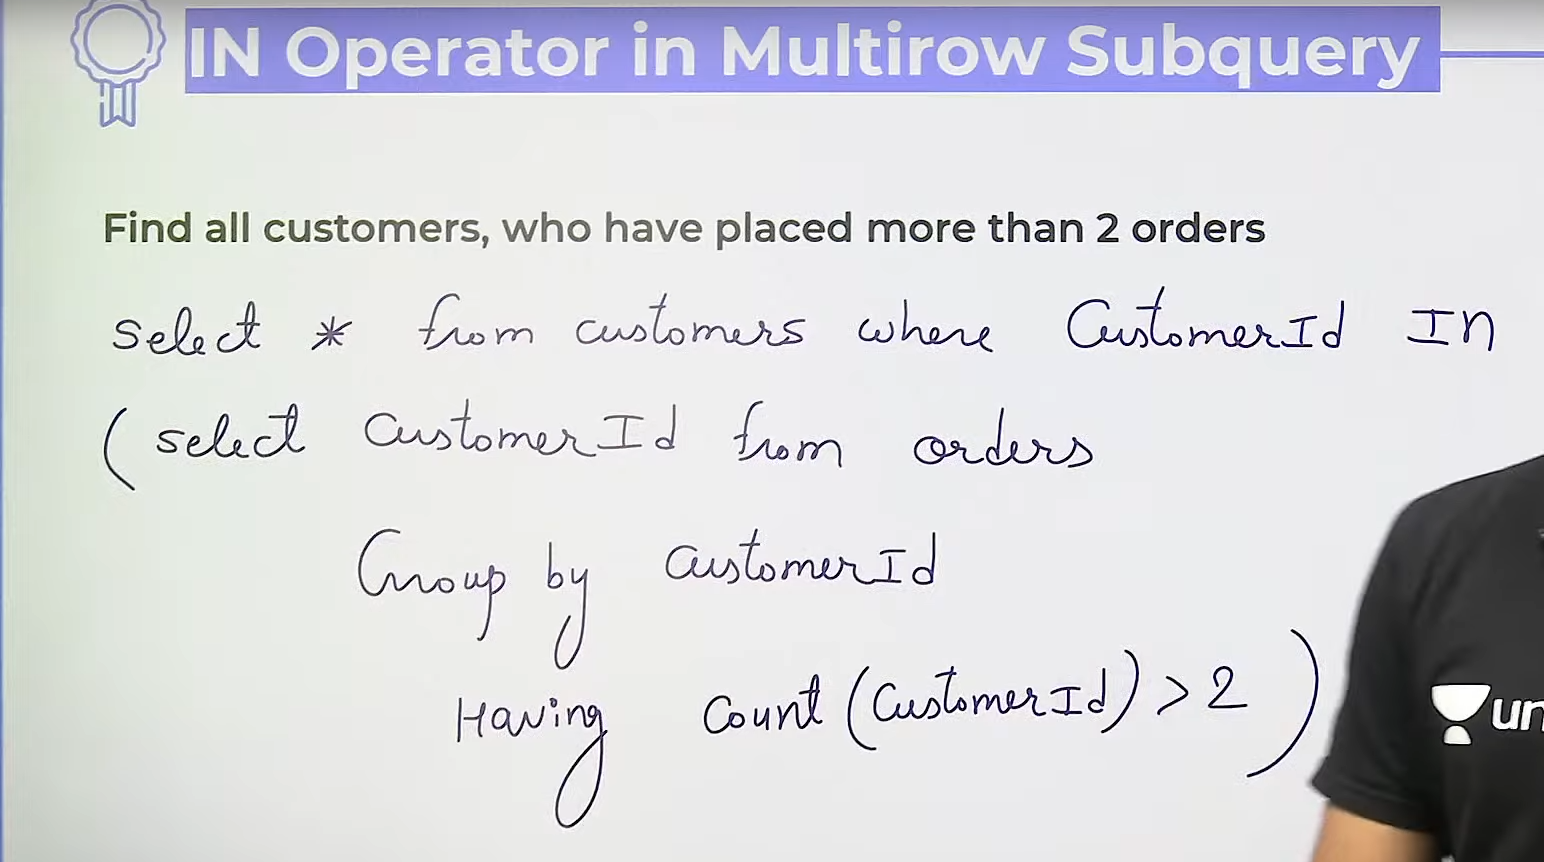 IN Operator in Multirow Subquery
Find all customers, who have placed more than 2 orders
select * from customers where CustomerId In
( select CustomerId from orders
Group by CustomerId
Having Count (CustomerId) > 2 )
un